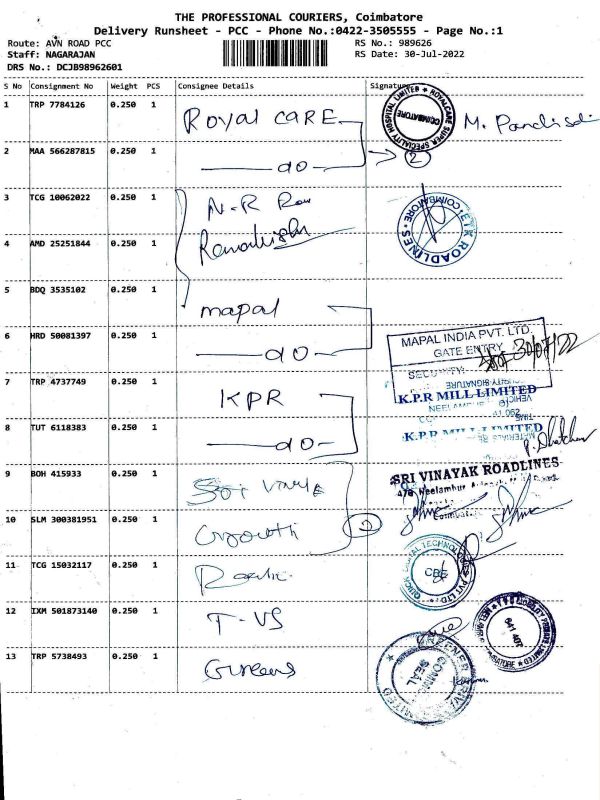 THE PROFESSIONAL COURIERS, Coimbatore
Delivery Runsheet - PCC - Phone No.:0422-3505555 - Page No.:1
Route: AVN ROAD PCC RS No.: 989626
Staff: NAGARAJAN RS Date: 30-Jul-2022
DRS No.: DCJB98962601
S No Consignment No Weight PCS Consignee Details Signature
1 TRP 7784126 0.250 1 Royal CARE M. Pandi
ROYALCARE SUPER SPECIALITY HOSPITAL LIMITED
COIMBATORE
2 MAA 566287815 0.250 1 do 2
3 TCG 10062022 0.250 1 N.R
ROADLINES COIMBATORE
4 AMD 25251844 0.250 1
5 BDQ 3535102 0.250 1 mapal
MAPAL INDIA PVT. LTD.
GATE ENTRY
30/07/22
6 HRD 50081397 0.250 1 do
SECURITY SIGNATURE
7 TRP 4737749 0.250 1 KPR
K.P.R MILL LIMITED
VEHICLE
TIME
8 TUT 6118383 0.250 1 do
K.P.R MILL LIMITED
9 BOH 415933 0.250 1 Sri
SRI VINAYAK ROADLINES
Neelambur
Coimbat
10 SLM 300381951 0.250 1 2
11 TCG 15032117 0.250 1
TECHNOLOGIES PVT LTD
CBE
12 IXM 501873140 0.250 1 T-VS
MOBILITY PRIVATE LIMITED
641 407
13 TRP 5738493 0.250 1
COMMON
SEAL